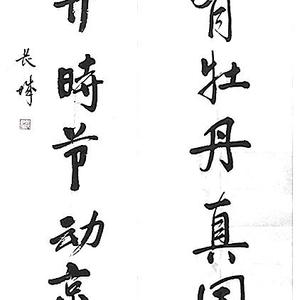 有牡丹真国
开時节动京